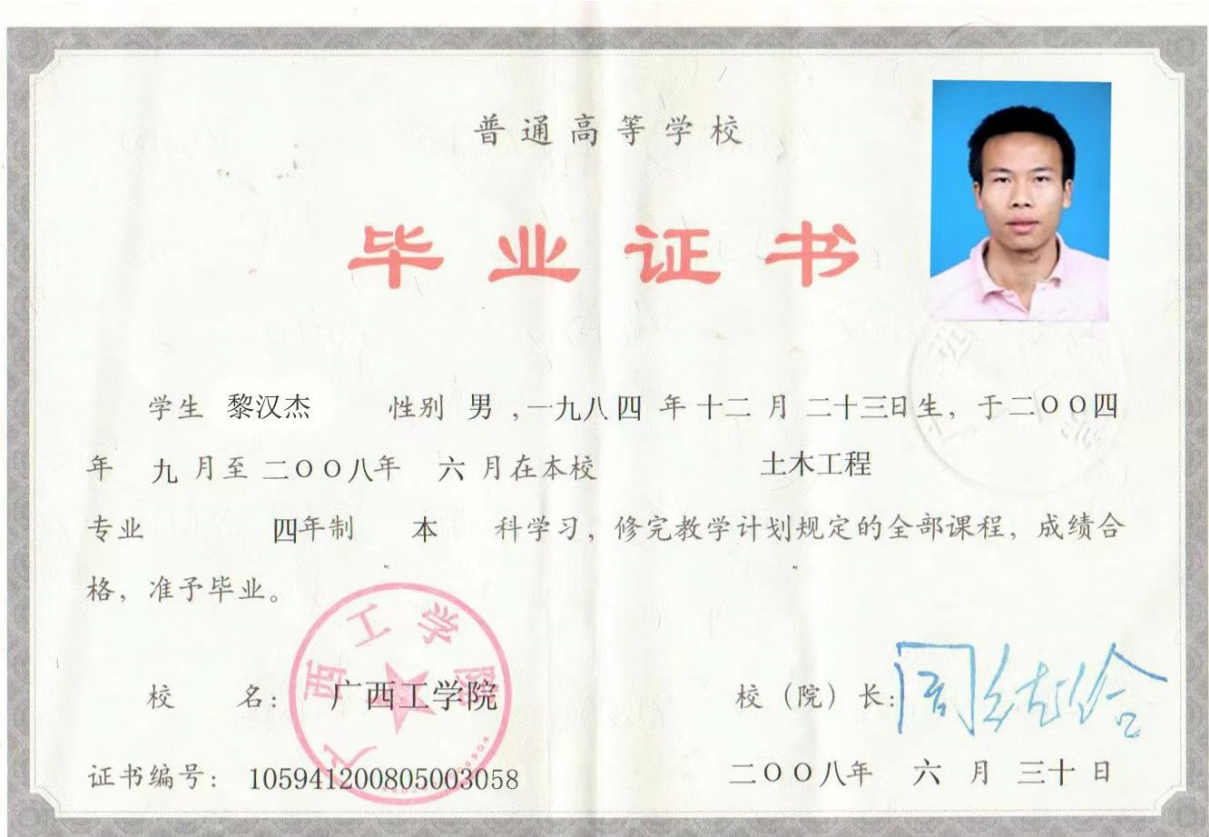 普通高等学校
毕业证书
学生 黎汉杰 性别 男 ,一九八四 年 十二 月 二十三日生，于二〇〇四
年 九 月至 二〇〇八年 六 月在本校 土木工程
专业 四年制 本 科学习，修完教学计划规定的全部课程，成绩合
格，准予毕业。
校 名： 广西工学院
广西工学院
校（院）长：
证书编号： 105941200805003058
二〇〇八年 六 月 三十 日